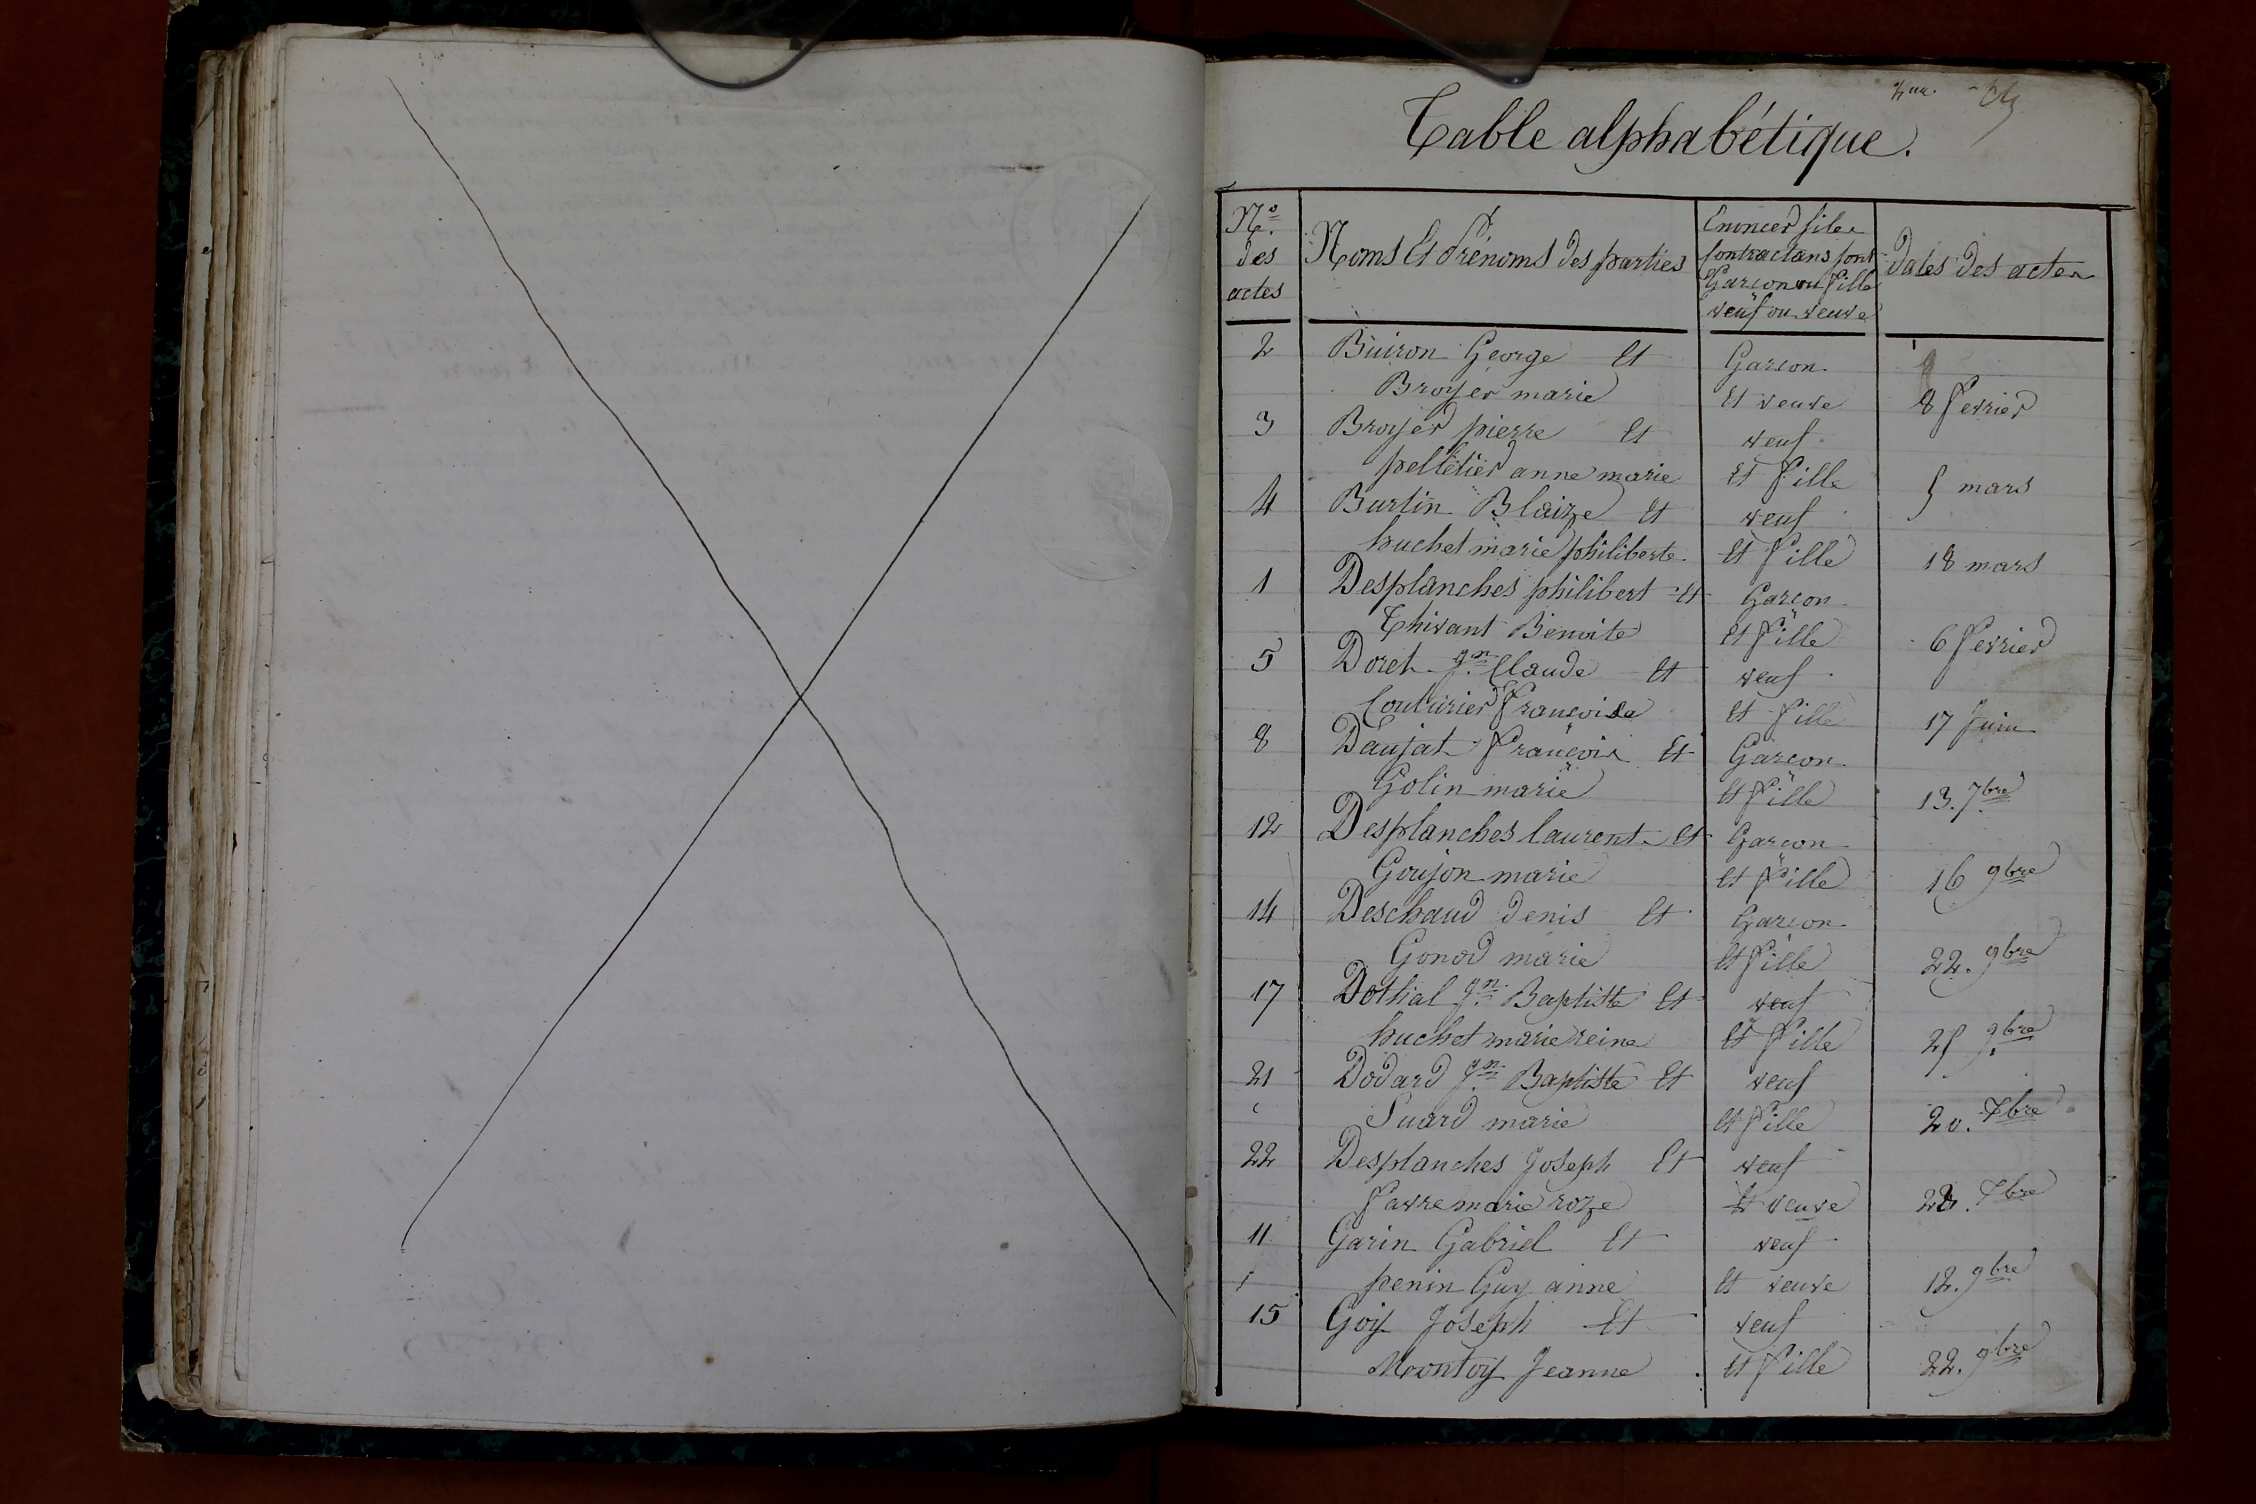 Table alphabétique.
N.o des actes
Noms Et Prénoms des parties
Enoncer si les
contractans sont
Garcon ou fille
veuf ou veuve
Dates des actes
2 Buiron George Et Garcon
Broyer marie Et veuve 8 fevrier
3 Broyer pierre Et veuf
pelletier anne marie Et fille 5 mars
4 Burtin Blaize Et veuf
huchet marie philiberte Et fille 18 mars
1 Desplanches philibert Et Garcon
Thivant Benoite Et fille 6 fevrier
5 Doret Jn. Claude Et veuf
Couturier francoise Et fille 17 Juin
8 Daujat francois Et Garcon
Golin marie Et fille 13. 7bre
12 Desplanches laurent Et Garcon
Goujon marie Et fille 16 9bre
14 Deschaud denis Et Garcon
Gonod marie Et fille 22. 9bre
17 Dothial Jn. Baptiste Et veuf
huchet marie reine Et fille 25 9bre
21 Dodard Jn. Baptiste Et veuf
Suard marie Et fille 20. Xbre
22 Desplanches Joseph Et veuf
favre marie roze Et veuve Xbre
11 Garin Gabriel Et veuf
penin Guy anne Et veuve 12. 9bre
15 Goiy Joseph Et veuf
Montoy Jeanne Et fille 22. 9bre